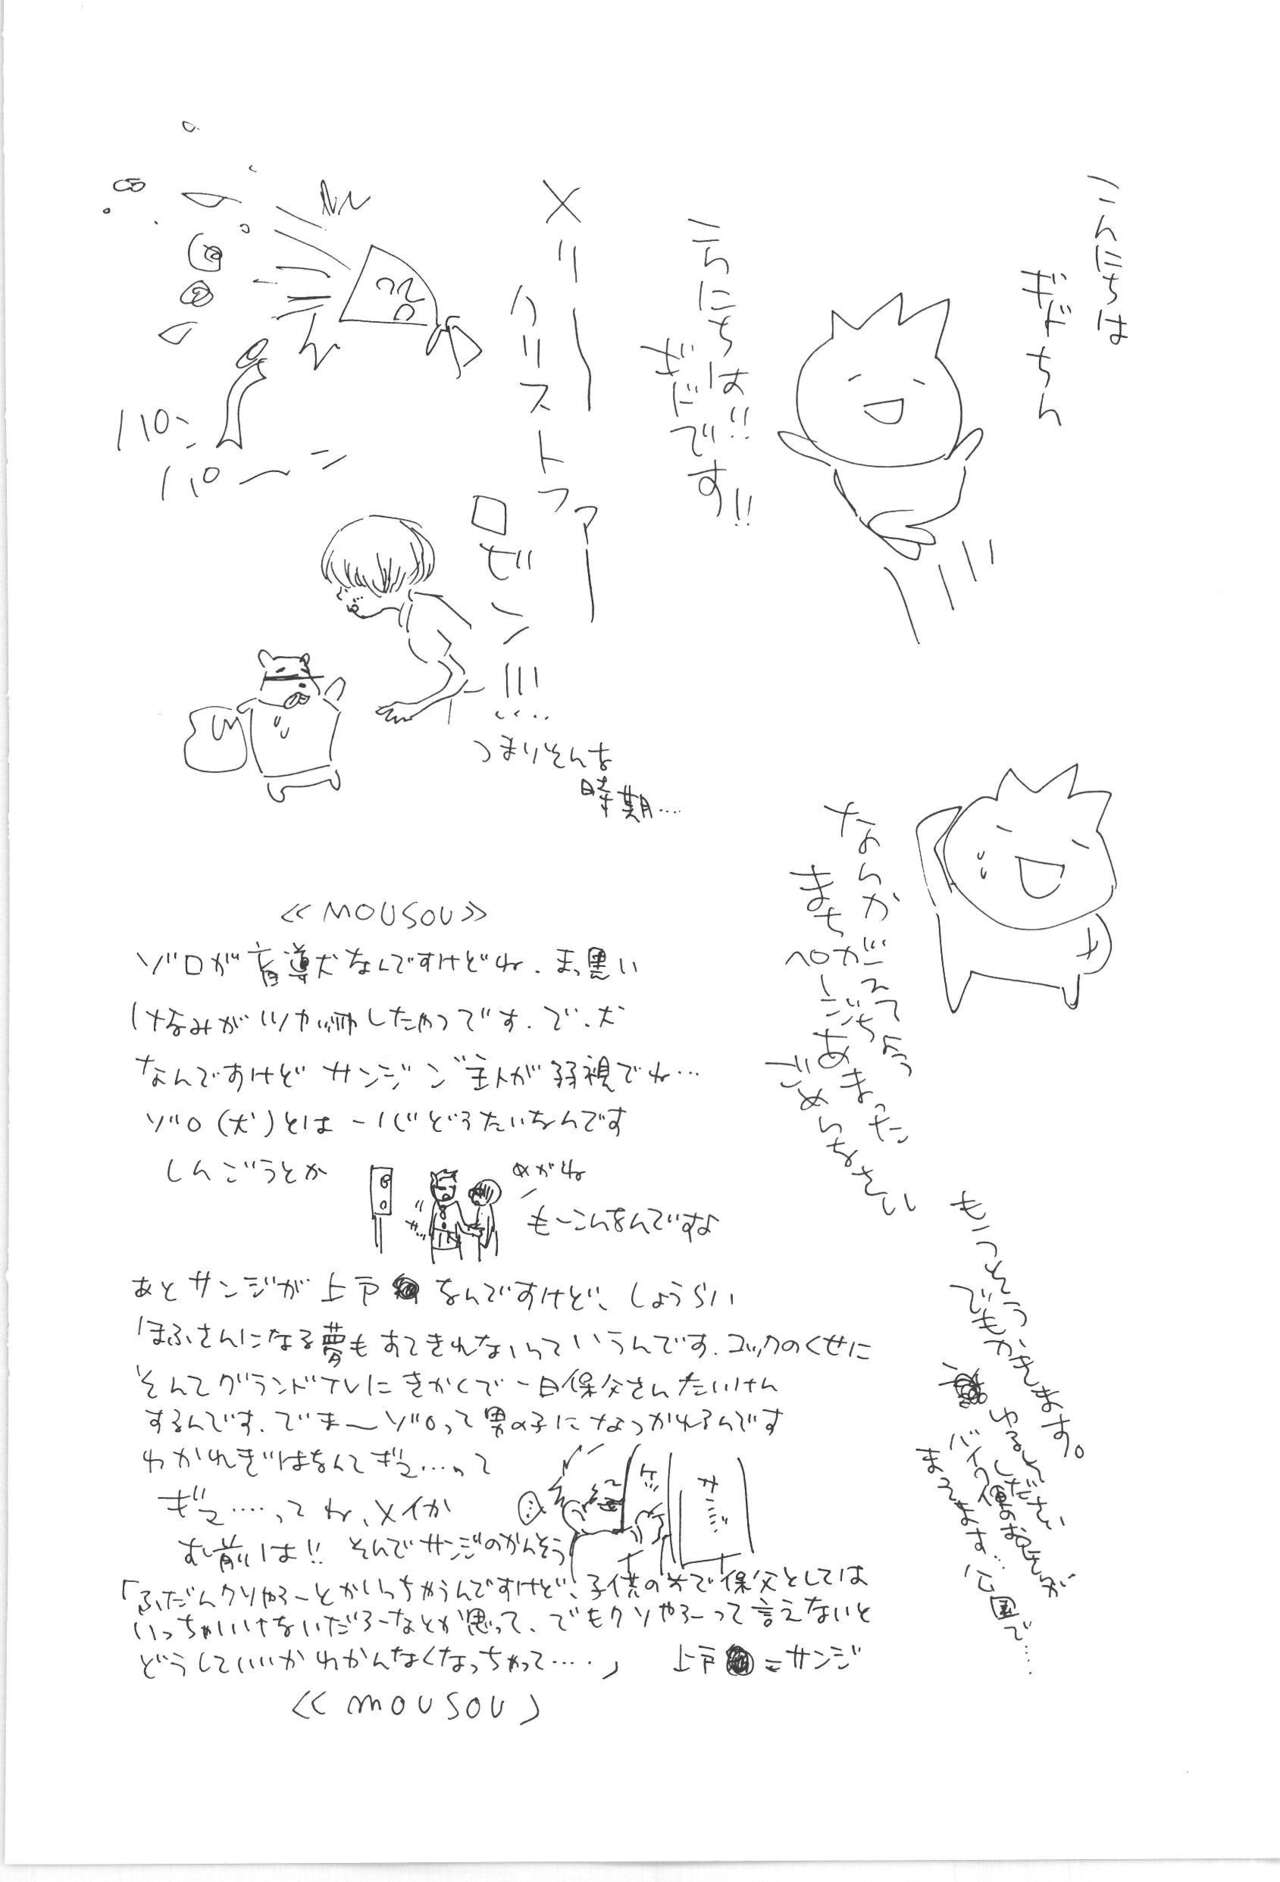 こんにちは
ギドちん
こんにちは!!
ギドです!!
メリー
クリストファー
ロビン!!!
つまりそんな
時期…
パン
パーン
なんかがえて
まちがえちょっ
ページあまった
ごめんなさい
もっとそうかきます。
でも
ゆるしください
バイク便のお兄さんが
まってます…公園で…
≪MOUSOU≫
ゾロが盲導犬なんですけどね、まっ黒い
けなみがツカツカしたやつです。で、犬
なんですけど サンジ ご主人が弱視でね…
ゾロ(犬)とは一心どうたいなんです
しんごうとか
めがね
もーこんなんですよ
あとサンジが 上戸 なんですけど、しょうらい
ほふさんになる夢もすてきれないっていうんです。コックのくせに
そんでグランドTVにきかくで一日保父さんたいけん
するんです。でまーゾロって男の子になつかれるんです
わかれぎはなんてギュ……って
ギュ……ってね、メイか
むし前は!! そんでサンジのかんそう
サンジ
「ふだんクソやろーとかいっちゃうんですけど、子供の前で保父としては
いっちゃいけないだろーなとか思って、でもクソやろーって言えないと
どうしていいかわかんなくなっちゃって……」 上戸 =サンジ
≪MOUSOU》